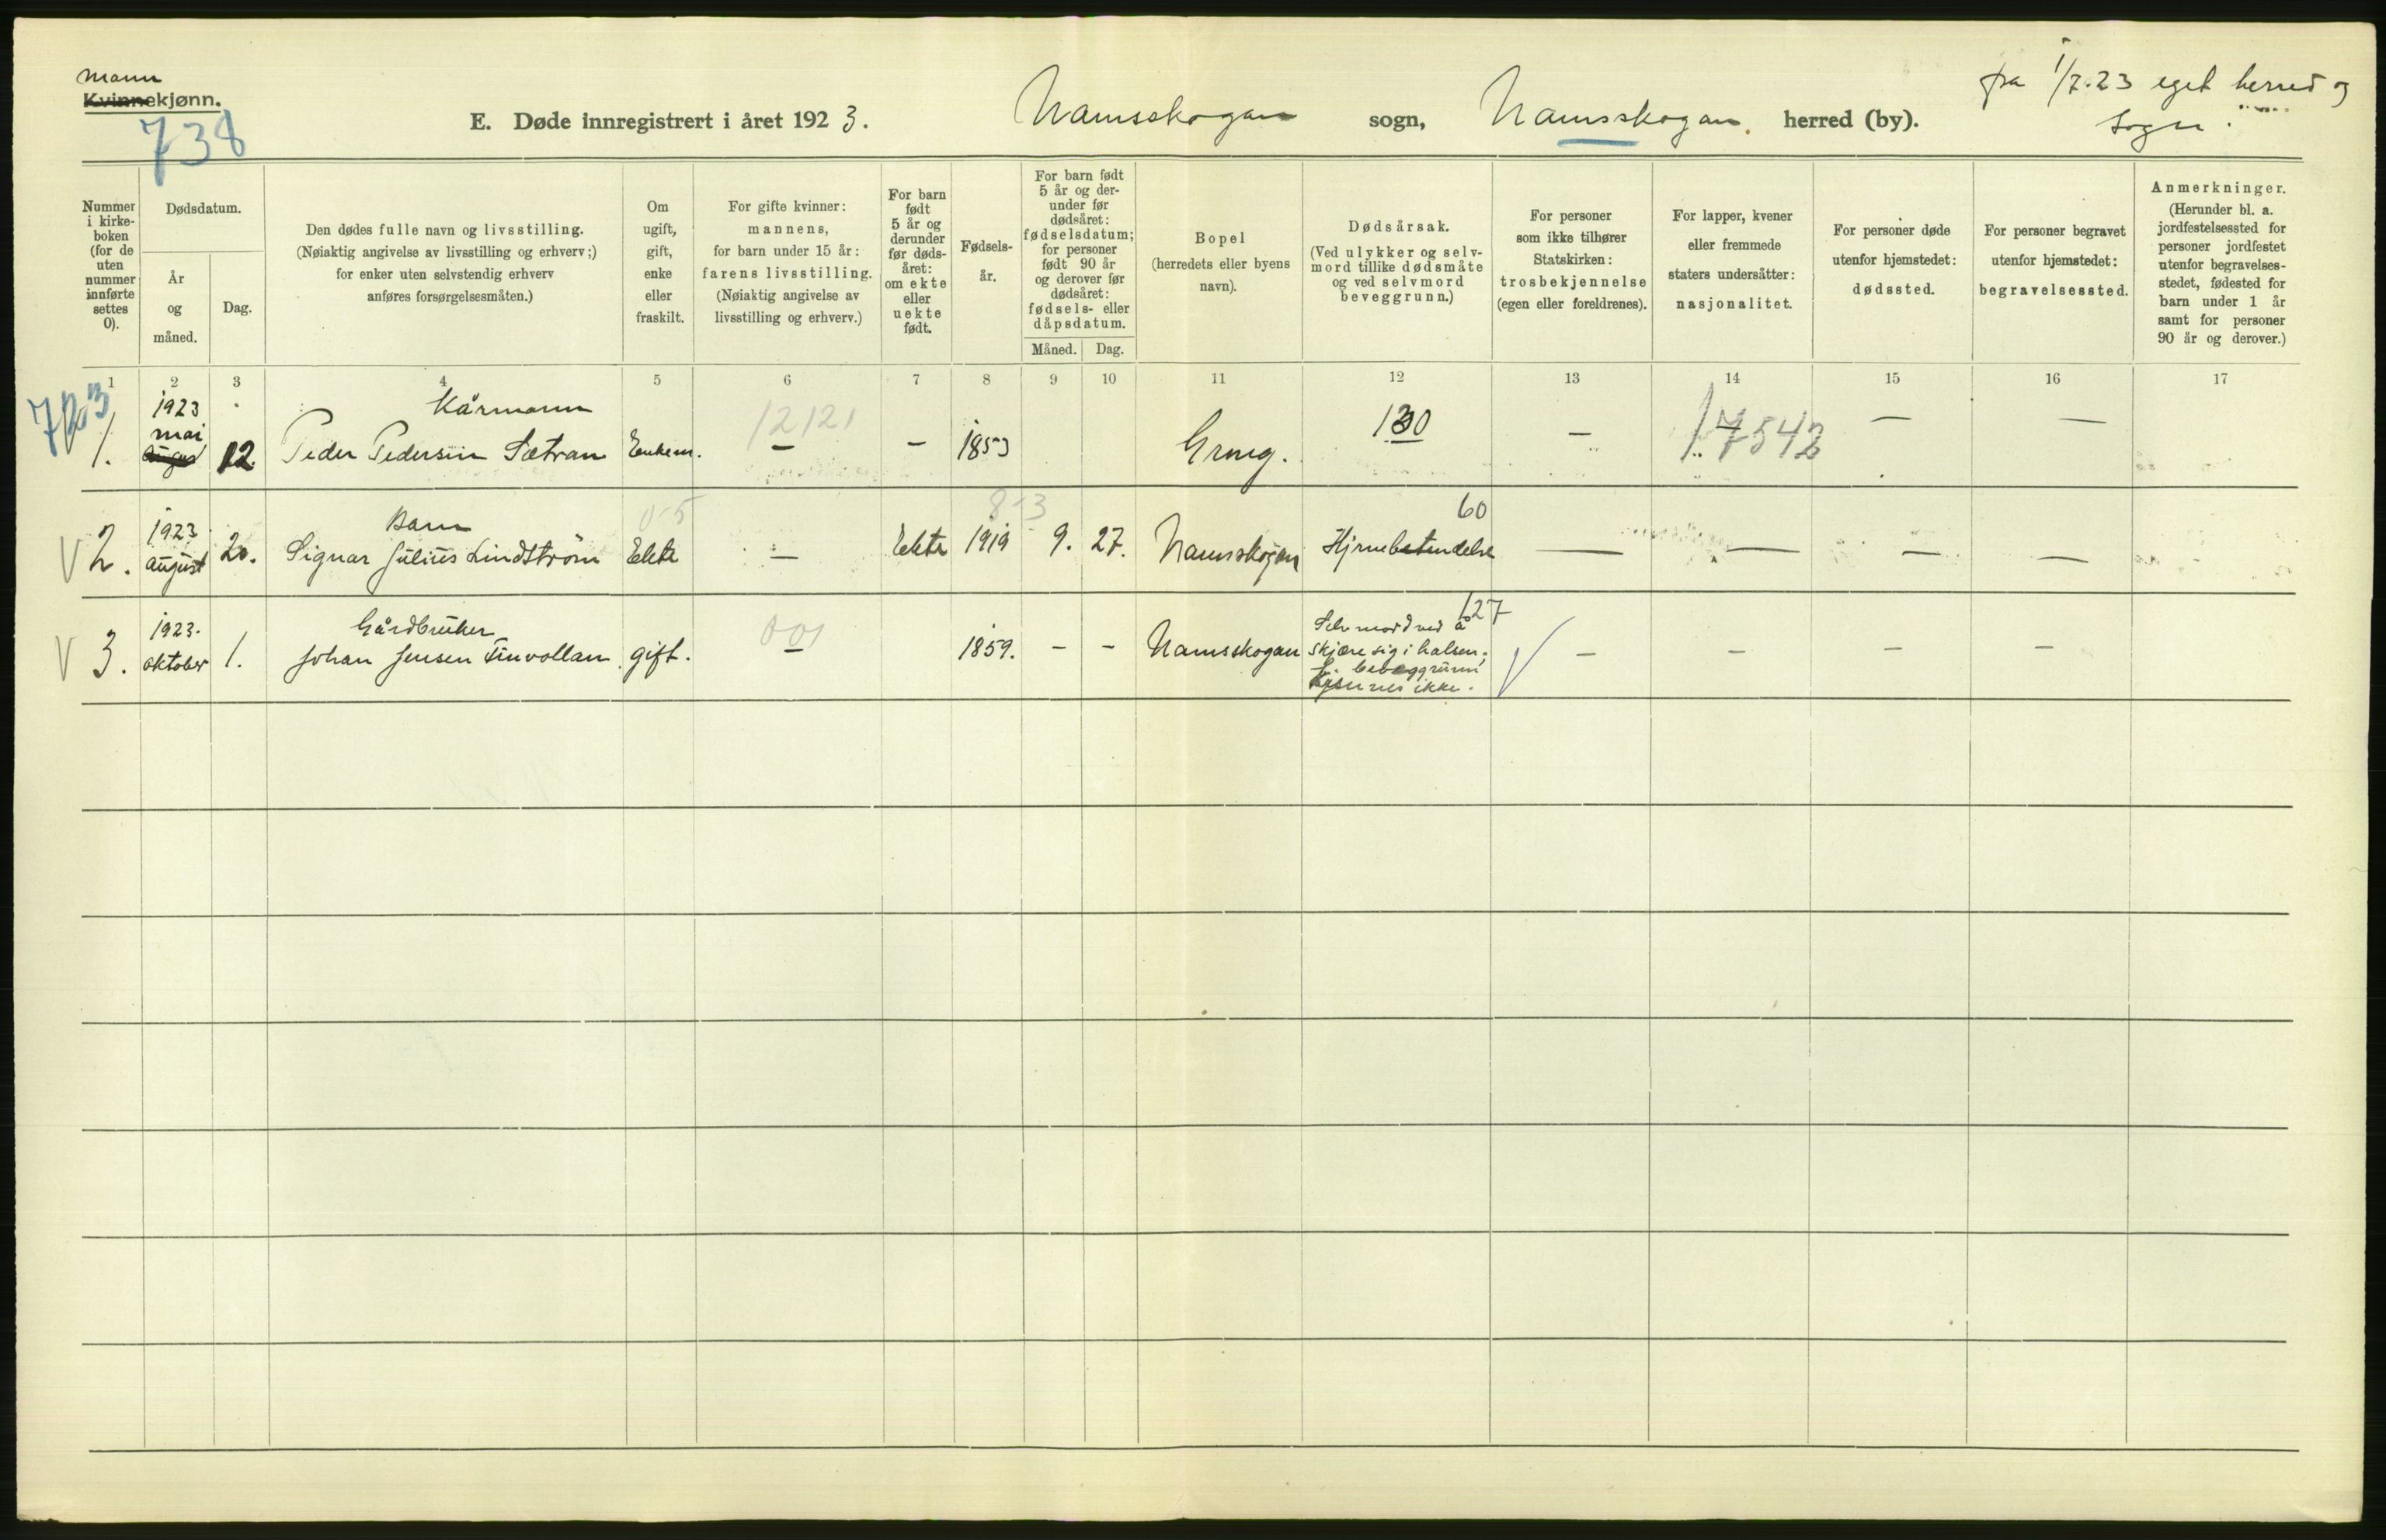 Mann
Kvinnekjønn.
738
E. Døde innregistrert i året 1923.
Namsskogan sogn, Namsskogan. herred (by).
fra 1/7.23 eget herred og
sogn.
Nummer
i kirke-
boken
(for de
uten
nummer
innførte
settes
0).
Dødsdatum.
År
og
måned.
Dag.
Den dødes fulle navn og livsstilling.
(Nøiaktig angivelse av livsstilling og erhverv;)
for enker uten selvstendig erhverv
anføres forsørgelsesmåten.)
Om
ugift,
gift,
enke
eller
fraskilt.
For gifte kvinner:
mannens,
for barn under 15 år:
farens livsstilling.
(Nøiaktig angivelse av
livsstilling og erhverv.)
For barn
født
5 år og
derunder
før døds-
året:
om ekte
eller
uekte
født.
Fødsels-
år.
For barn født
5 år og der-
under før
dødsåret:
fødselsdatum;
for personer
født 90 år
og derover før
dødsåret:
fødsels- eller
dåpsdatum.
Måned. Dag.
Bopel
(herredets eller byens
navn).
Dødsårsak.
(Ved ulykker og selv-
mord tillike dødsmåte
og ved selvmord
beveggrunn.)
For personer
som ikke tilhører
Statskirken:
trosbekjennelse
(egen eller foreldrenes).
For lapper, kvener
eller fremmede
staters undersåtter:
nasjonalitet.
For personer døde
utenfor hjemstedet:
dødssted.
For personer begravet
utenfor hjemstedet:
begravelsessted.
Anmerkninger.
(Herunder bl. a.
jordfestelsessted for
personer jordfestet
utenfor begravelses-
stedet, fødested for
barn under 1 år
samt for personer
90 år og derover.)
1 2 3 4 5 6 7 8 9 10 11 12 13 14 15 16 17
1923 Kårmann 12121 130
mai
1. august 12. Peder Pedersen Sætran Enkem. — — 1853 Grong. — 17542 — —
0-5 8-3 60
1923 Barn
V 2. august 20. Signar Julius Lindström Ekte — Ekte 1919 9. 27. Namsskogan Hjernebetendelse — — — —
1923. Gårdbruker 001 Selvmord ved å 127
V 3. oktober 1. Johan Jensen Finvollan gift. — 1859. - - Namsskogan skjære sig i halsen, V - - - -
beveggrunn
kjennes ikke.